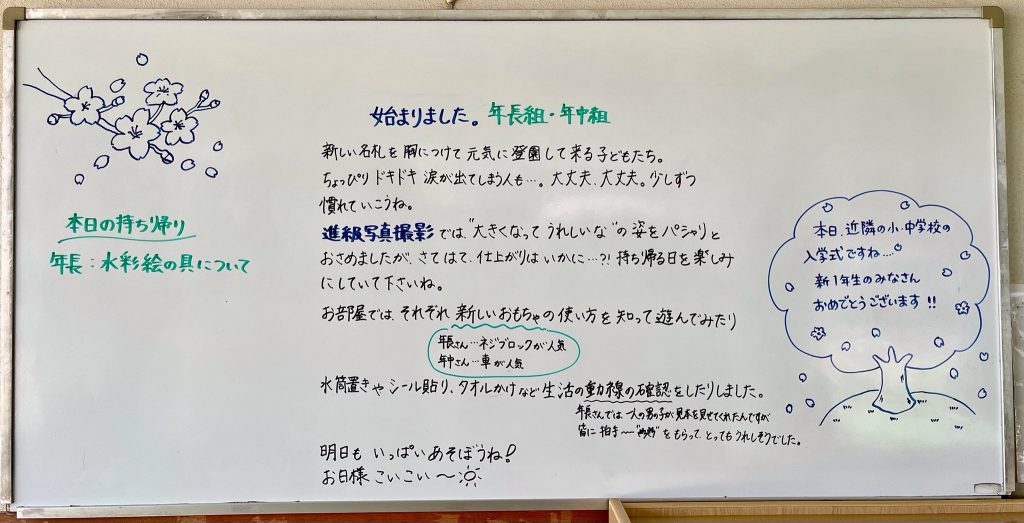 始まりました。年長組・年中組
新しい名札を胸につけて元気に登園して来る子どもたち。
ちょっぴりドキドキ涙が出てしまう人も…。大丈夫、大丈夫。少しずつ
慣れていこうね。
進級写真撮影では、"大きくなってうれしいな"の姿をパシャリと
おさめましたが、さてはて、仕上がりはいかに…?! 持ち帰る日を楽しみ
にしていて下さいね。
お部屋では、それぞれ新しいおもちゃの使い方を知って遊んでみたり
年長さん…ネジブロックが人気
年中さん…車が人気
水筒置きやシール貼り、タオルかけなど生活の動線の確認をしたりしました。
年長さんでは、一人の男の子が見本を見せてくれたんですが
皆に拍手〜をもらって、とってもうれしそうでした。
明日もいっぱいあそぼうね!
お日様こいこい〜
本日の持ち帰り
年長:水彩絵の具について
本日、近隣の小・中学校の
入学式ですね…。
新1年生のみなさん
おめでとうございます!!